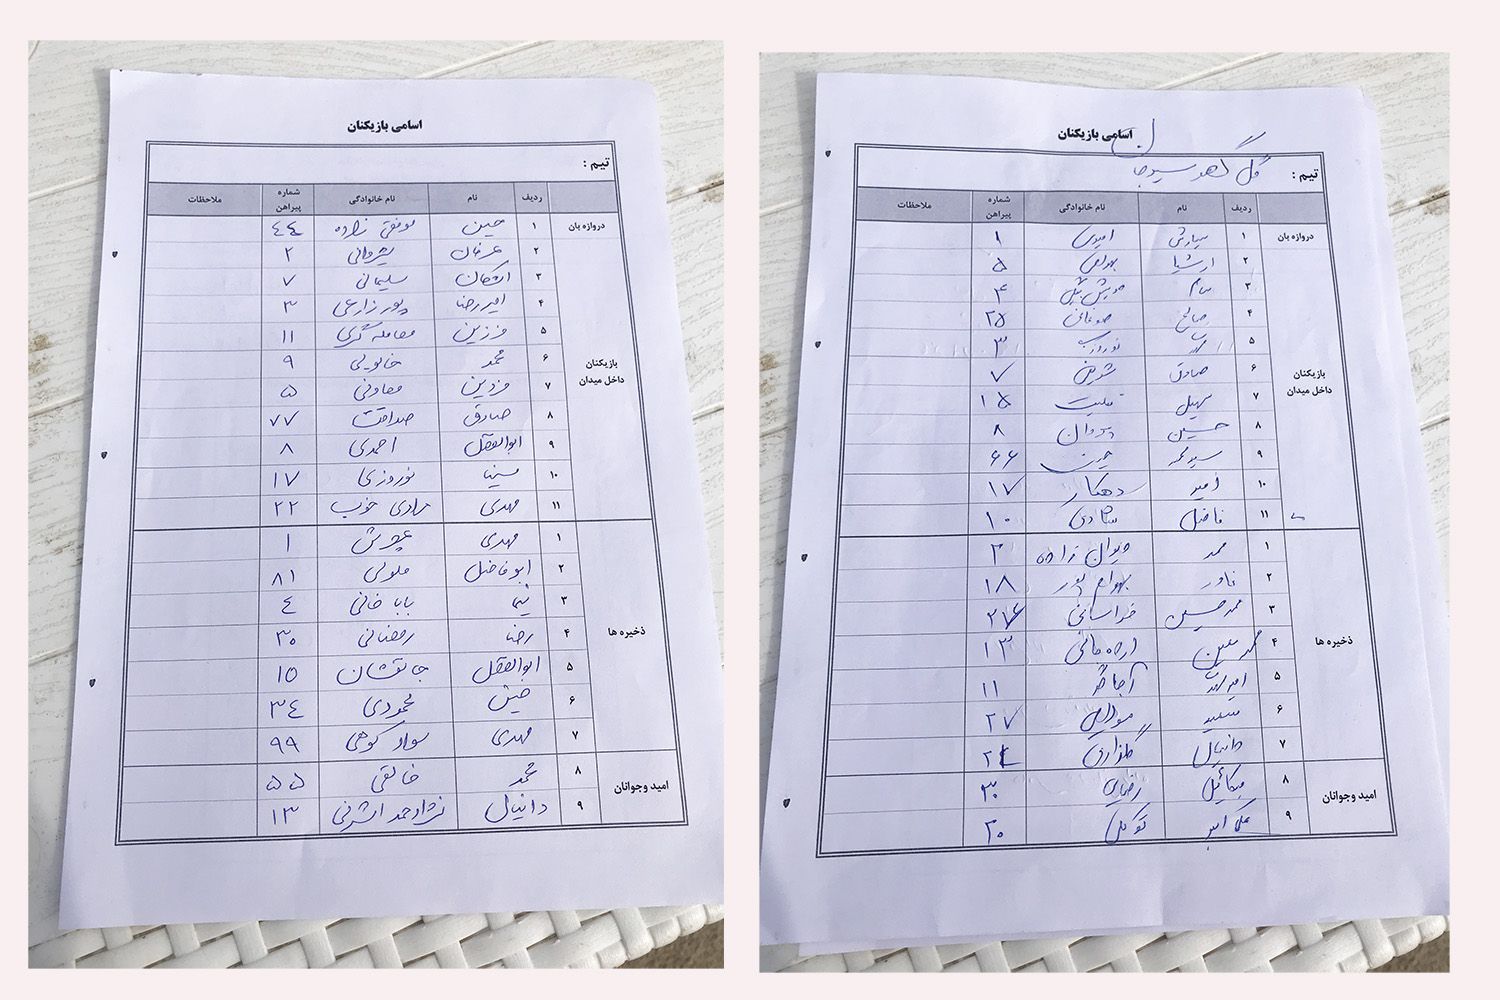 اسامی بازیکنان
تیم :
ردیف نام نام خانوادگی شماره پیراهن ملاحظات
دروازه بان
۱ حسین موفقی زاده ٤٤
۲ عرفان شیروانی ۲
۳ اشکان سلیمانی ۷
۴ امیررضا پورزارعی ۳
۵ فرزین معامله گری ۱۱
۶ محمد ۹
بازیکنان داخل میدان
۷ فردین معاونی ۵
۸ صادق صداقت ۷۷
۹ ابوالفضل احمدی ۸
۱۰ سینا نوروزی ۱۷
۱۱ مهدی مرادی خوب ۲۲
۱ مهدی ۱
۲ ابوفاضل ملولی ۸۱
۳ نیما بابا خانی ٤
ذخیره ها
۴ رضا رمضانی ۳۰
۵ ابوالفضل جانفشان ۱۵
۶ محمودی ۳٤
۷ مهدی سواد کوهی ۹۹
امید وجوانان
۸ محمد خالقی ۵۵
۹ دانیال نژاداحمد اشرفی ۱۳
اسامی بازیکنان
تیم : گل گهر سیرجان
ردیف نام نام خانوادگی شماره پیراهن ملاحظات
دروازه بان
۱ سیاوش امیری ۱
۲ ارشیا بهرامی ۵
۳ سام درویش ۴
۴ صالح ۲۵
۵ ۳
بازیکنان داخل میدان
۶ صادق شریفی ۷
۷ سهیل ۱۵
۸ حسین پروان ۸
۹ سیدمحمد ۶۶
۱۰ امید دهکار ۱۷
۱۱ فاضل ۱۰
۱ محمد دیوان زاده ۲
۲ بهرام پور ۱۸
۳ محمدحسین خراسانی
ذخیره ها
۴ محمد معین ۱۳
۵ ۱۱
۶ سعید مرادی ۲۷
۷ دانیال گلزاری
امید وجوانان
۸ میکائیل رضایی ۳۰
۹ علی اکبر توکل ۲۰